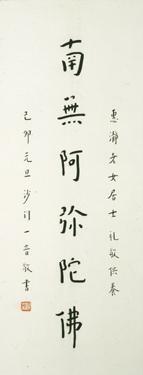 惠瀞女居士礼敬供養
南無阿弥陀佛
己卯元旦沙门一音敬書